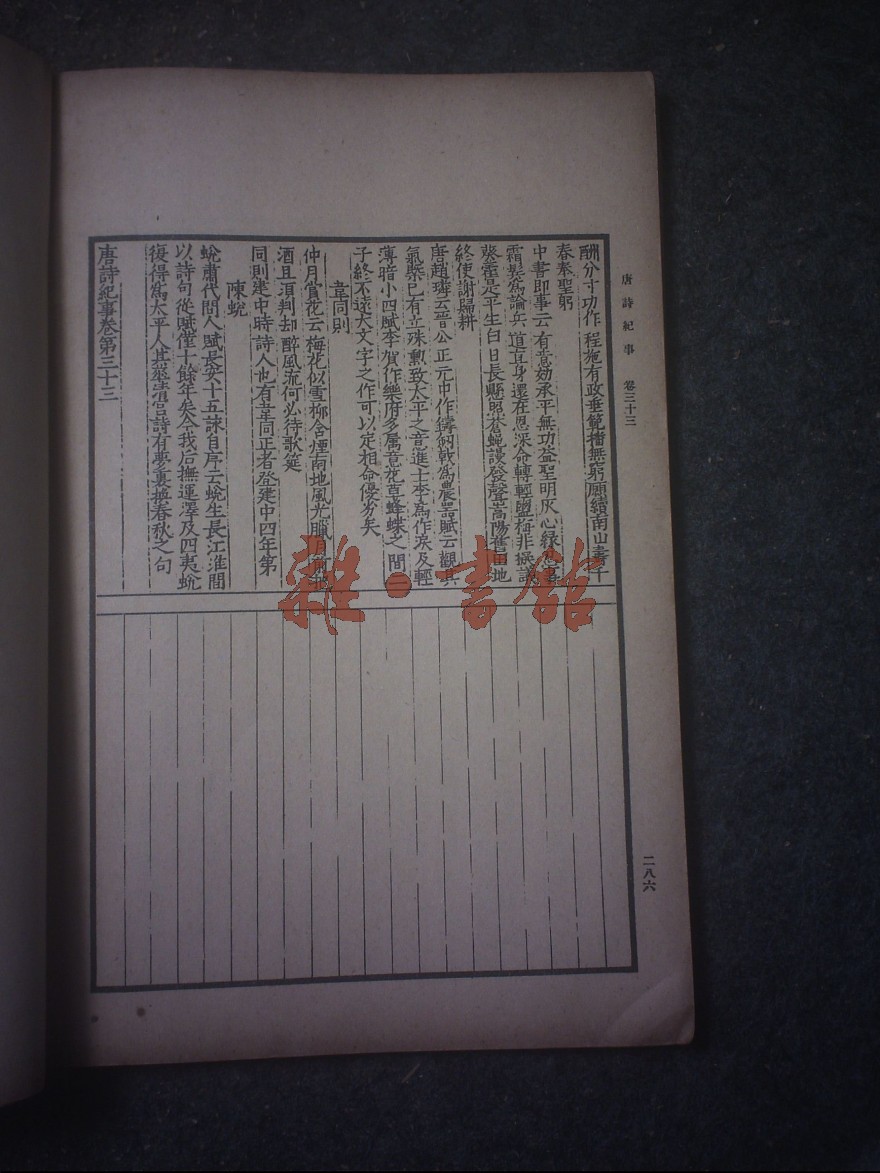 唐詩紀事 卷三十三
酬分寸功作程施有政垂範播無窮願續南山壽千
春奉聖躬
中書即事云有意効承平無功益聖明灰心緣忍事
霜鬢爲論兵道直身還在恩深命轉輕鹽梅非擬議
葵藿是平生白日長懸照蒼蠅謾發聲嵩陽舊田地
終使謝歸耕
唐趙璘云晉公貞元中作鑄劒戟爲農器賦云觀其
氣槩已有立殊勲致太平之意進士李爲作淚及輕
薄暗小四賦李賀作樂府多屬意花草蜂蝶之間二
子終不遠大文字之作可以定相命優劣矣
韋同則
仲月賞花云梅花似雪柳含煙南地風光臘月前把
酒且須判却醉風流何必待歌筵
同則建中時詩人也有韋同正者登建中四年第
陳蛻
蛻肅代間人賦長安十五詠自序云蛻生長江淮間
以詩句從賦僅十餘年矣今我后撫運澤及四夷蛻
復得爲太平人其華清宮詩有夢裏換春秋之句
唐詩紀事卷第三十三
二八六
雜·書館